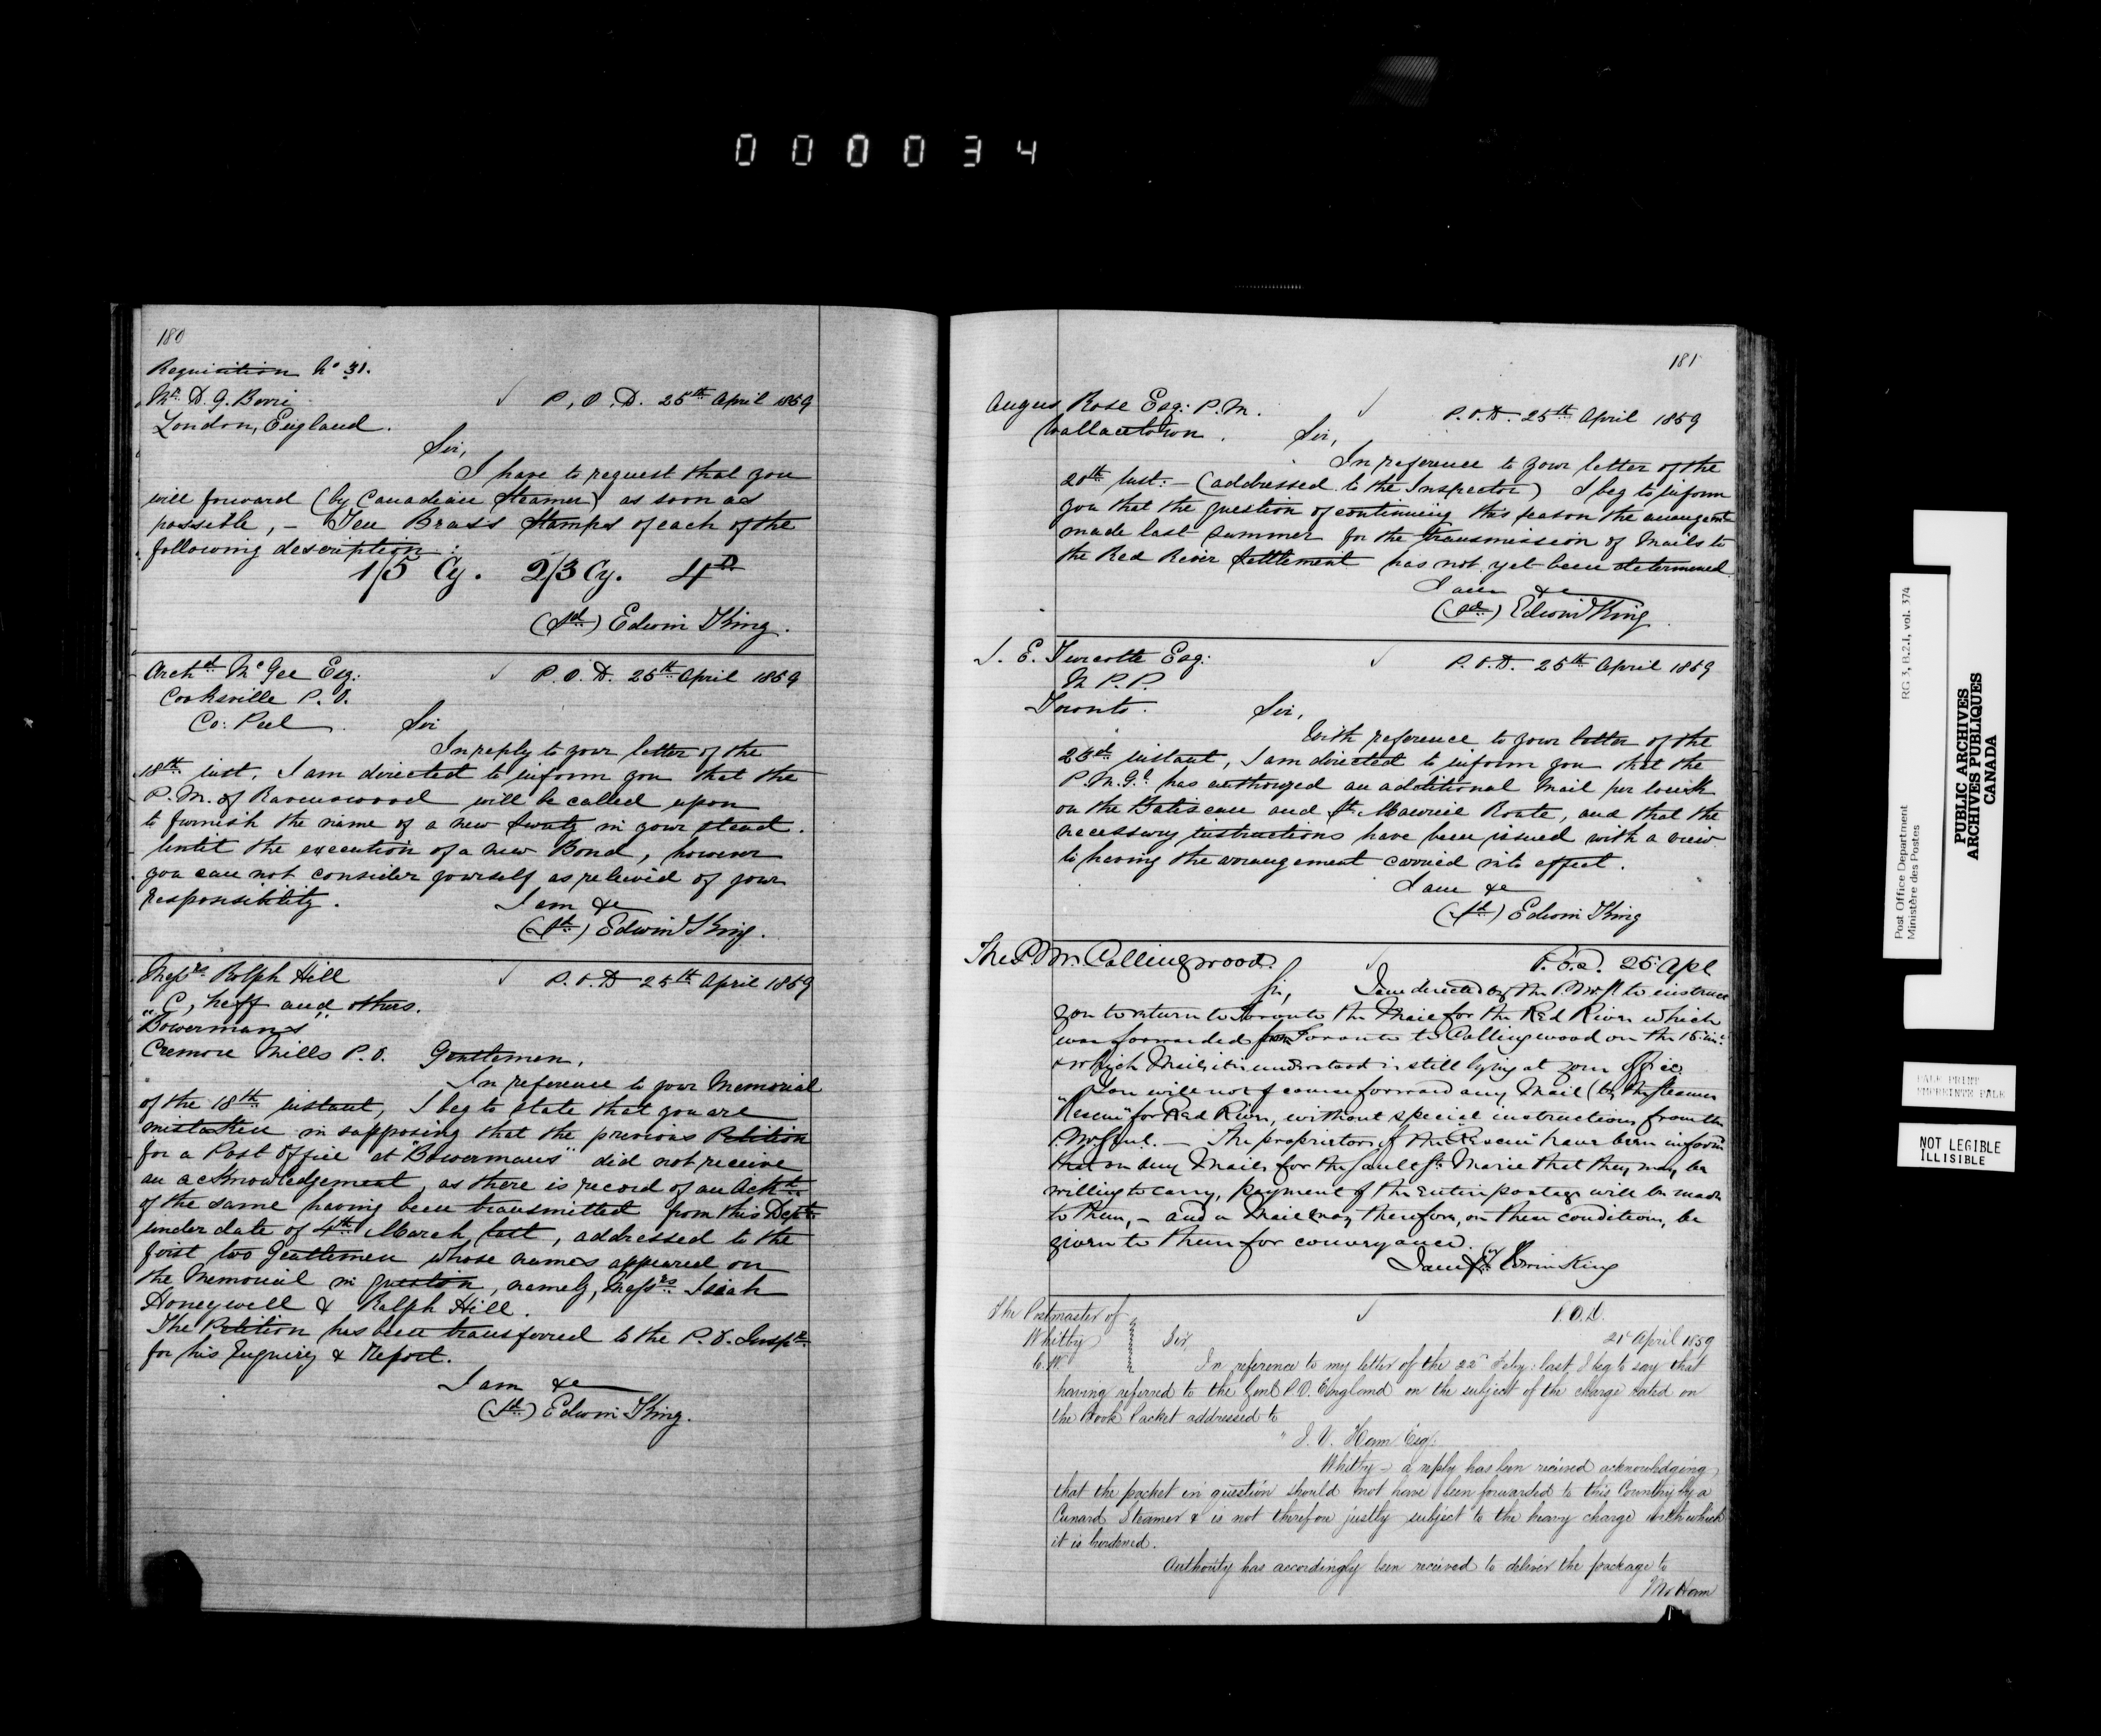 000034
180
Requisition No 31.
Mr. D. G. Berri
London, England.
P. O. D. 25th April 1859
Sir,
I have to request that you
will forward (by Canadian Steamer) as soon as
possible, - Ten Brass Stamps of each of the
following description:
1/5 Cy. 2/3 Cy. 4D
(Sd) Edwin King.
Archd McGee Esq:
Cooksville P. O.
Co: Peel
P. O. D. 25th April 1859
Sir
In reply to your letter of the
18th inst, I am directed to inform you that the
P. M. of Ravenswood will be called upon
to furnish the name of a new Surety in your stead.
Until the execution of a new Bond, however
you can not consider yourself as relieved of your
responsibility.
I am &c
(Sd) Edwin King.
Messrs Rolph Hill
" C, Neff and others.
"Bowermans"
Creemore Mills P. O.
P. O. D 25th April 1859
Gentlemen,
In reference to your Memorial
of the 18th instant, I beg to state that you are
mistaken in supposing that the previous Petition
for a Post Office at "Bowermans" did not receive
an acknowledgement, as there is record of an Ackt
of the same having been transmitted from this Dept
under date of 4th March last, addressed to the
first two Gentlemen whose names appeared on
the Memorial in question, namely, Messrs Isiah
Honeywell & Ralph Hill.
The Petition has been transferred to the P. O. Inspr
for his Enquiry & Report.
I am &c
(Sd) Edwin King.
181
Angus Rose Esq: P. M.
Wallacetown.
P. O. D. 25th April 1859
Sir,
In reference to your letter of the
20th inst: - (addressed to the Inspector) I beg to inform
you that the question of continuing this season the arrangemt
made last summer for the transmission of Mails to
the Red River Settlement has not yet been determined.
I am &c
(Sd) Edwin King.
J. E. Turcotte Esq:
M P. P.
Toronto.
P. O. D. 25th April 1859
Sir,
With reference to your letter of the
23d instant, I am directed to inform you that the
P. M. Gl has authorized an additional Mail per week
on the Batiscan and St. Maurice Route, and that the
necessary instructions have been issued with a view
to having the arrangement carried into effect.
I am &c
(Sd) Edwin King
The P. M. Collingwood.
P. O. D. 25 Apl
Sir,
I am directed by the P. M. Gl to instruct
you to return to Toronto the Mail for the Red River which
was forwarded from Toronto to Collingwood on the 15 inst
& which Mail it is understood is still lying at your office.
You will not of course forward any Mail (by the Steamer
"Rescue" for Red River, without special instructions from the
P. M. Genl. - The proprietors of the "Rescue" have been informed
that on any Mails for the Sault St. Marie that they may be
willing to carry, payment of the entire postage will be made
to them, - and a Mail may therefore, on these conditions, be
given to them for conveyance.
I am &c (Sd) Edwin King
The Postmaster of
Whitby
C. W.
P. O. D.
21 April 1859
Sir,
In reference to my letter of the 22d Feby: last, I beg to say that
having referred to the Genl P. O. England on the subject of the charge rated on
the Book Packet addressed to
" J. V. Ham Esq:
Whitby - a reply has been recieved acknowledging
that the packet in question should not have been forwarded to this Country by a
Cunard Steamer & is not therefore justly subject to the heavy charge with which
it is burdened.
Authority has accordingly been received to deliver the package to
Mr Ham
Post Office Department
Ministère des Postes
RG 3, B.2.1, vol. 374
PUBLIC ARCHIVES
ARCHIVES PUBLIQUES
CANADA
PALE PRINT
IMPRINTE PALE
NOT LEGIBLE
ILLISIBLE